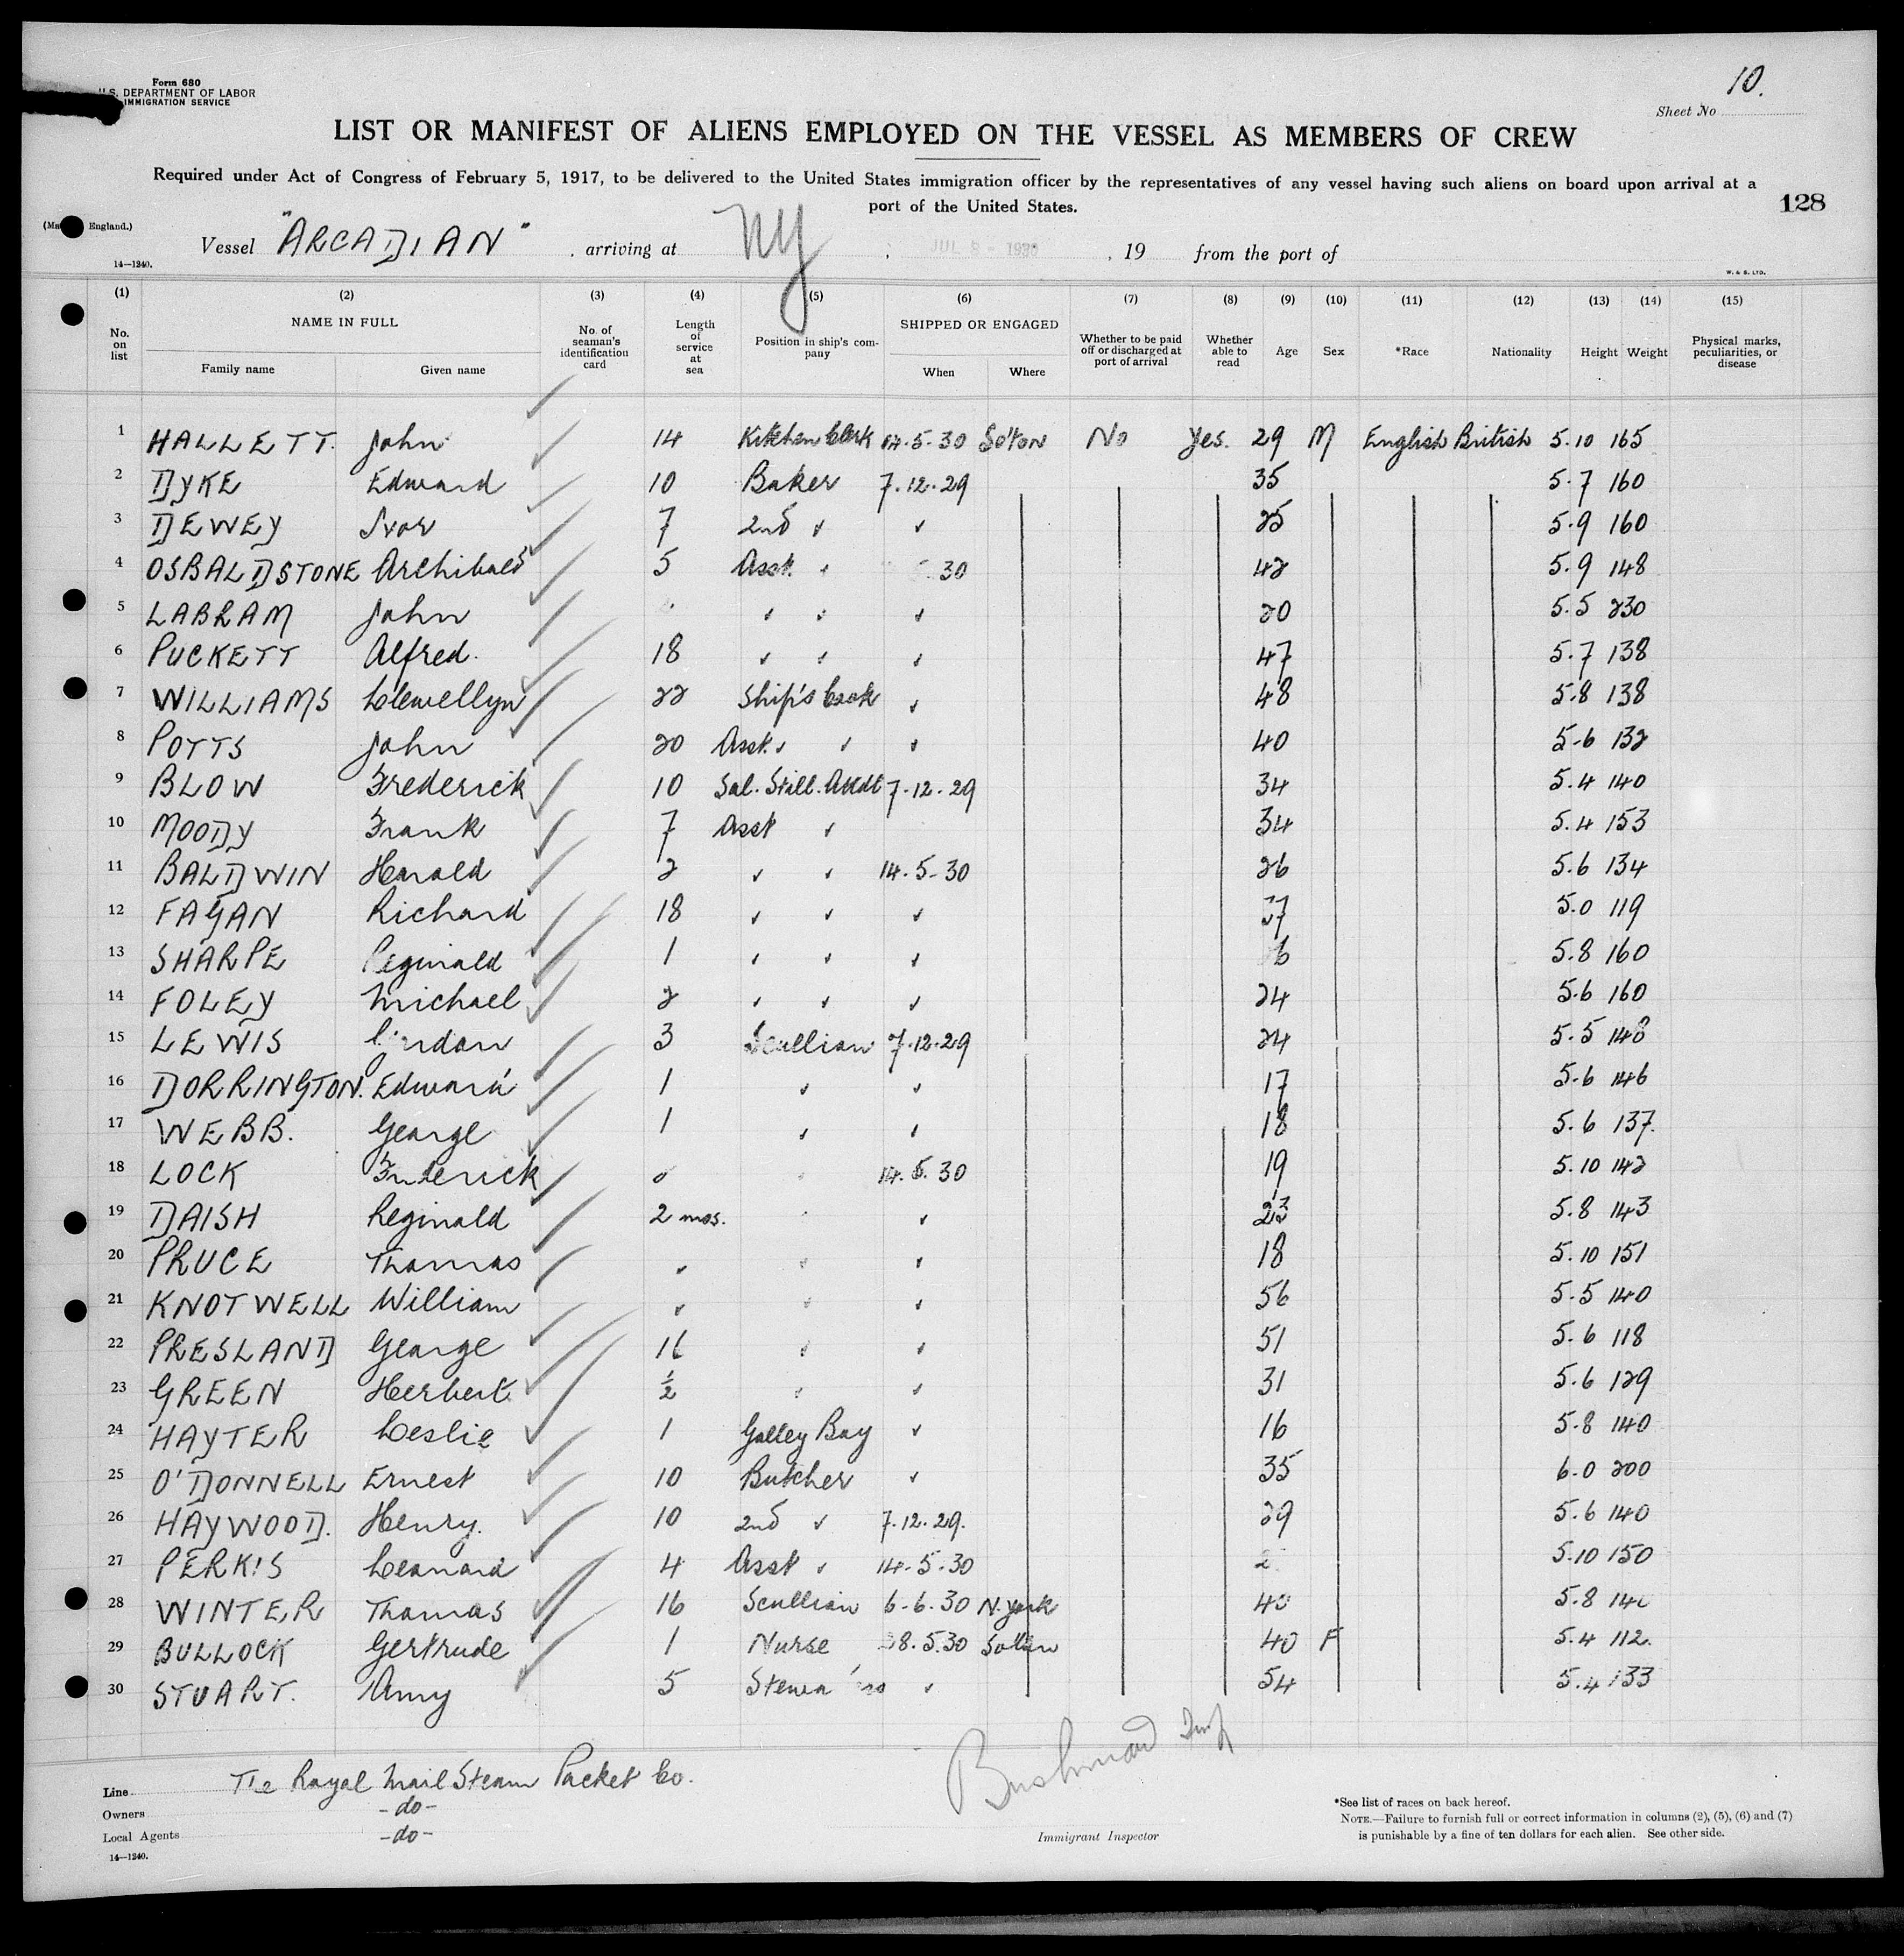 Form 680
U.S. DEPARTMENT OF LABOR
IMMIGRATION SERVICE
Sheet No 10.
LIST OR MANIFEST OF ALIENS EMPLOYED ON THE VESSEL AS MEMBERS OF CREW
Required under Act of Congress of February 5, 1917, to be delivered to the United States immigration officer by the representatives of any vessel having such aliens on board upon arrival at a
port of the United States.
128
England.)
Vessel "ARCADIAN", arriving at NY, JUL 8 - 1930, 19 from the port of
14—1240.
W. & S. LTD.
(1) (2) (3) (4) (5) (6) (7) (8) (9) (10) (11) (12) (13) (14) (15)
No. on list NAME IN FULL Family name Given name No. of seaman's identification card Length of service at sea Position in ship's company SHIPPED OR ENGAGED When Where Whether to be paid off or discharged at port of arrival Whether able to read Age Sex *Race Nationality Height Weight Physical marks, peculiarities, or disease
1 HALLETT. John 14 Kitchen Clerk 14.5.30 Soton No Yes. 29 M English British 5.10 165
2 DYKE Edward 10 Baker 7.12.29 35 5.7 160
3 DEWEY Ivor 7 2nd ✓ ✓ 25 5.9 160
4 OSBALDSTONE Archibald 5 Asst. ✓ 5.30 42 5.9 148
5 LABRAM John ✓ ✓ ✓ 20 5.5 230
6 PUCKETT Alfred. 18 ✓ ✓ ✓ 47 5.7 138
7 WILLIAMS Llewellyn 22 Ship's Cook ✓ 48 5.8 138
8 POTTS John 20 Asst. ✓ ✓ ✓ 40 5.6 132
9 BLOW Frederick 10 Sal. Still. Attdt 7.12.29 34 5.4 140
10 MOODY Frank 7 Asst ✓ 34 5.4 153
11 BALDWIN Harold 2 ✓ ✓ 14.5.30 26 5.6 134
12 FAGAN Richard 18 ✓ ✓ ✓ 37 5.0 119
13 SHARPE Reginald 1 ✓ ✓ ✓ 5.8 160
14 FOLEY Michael 2 ✓ ✓ ✓ 24 5.6 160
15 LEWIS Gordon 3 Scullion 7.12.29 24 5.5 148
16 DORRINGTON. Edward 1 ✓ ✓ 17 5.6 146
17 WEBB. George 1 ✓ ✓ 18 5.6 137.
18 LOCK Frederick 14.5.30 19 5.10 142
19 DAISH Reginald 2 mos. ✓ ✓ 23 5.8 143
20 PRUCE Thomas ✓ ✓ ✓ 18 5.10 151
21 KNOTWELL William ✓ ✓ ✓ 56 5.5 140
22 PRESLAND George 16 ✓ ✓ 51 5.6 118
23 GREEN Herbert 1/2 ✓ ✓ 31 5.6 129
24 HAYTER Leslie 1 Galley Boy ✓ 16 5.8 140
25 O'DONNELL Ernest 10 Butcher ✓ 35 6.0 200
26 HAYWOOD. Henry. 10 2nd ✓ 7.12.29. 29 5.6 140
27 PERKIS Leonard 4 Asst ✓ 14.5.30 5.10 150
28 WINTER Thomas 16 Scullion 6.6.30 N. York 40 5.8 140
29 BULLOCK Gertrude 1 Nurse 28.5.30 Soton 40 F 5.4 112.
30 STUART. Amy 5 Stewardess ✓ 54 5.4 133
Line The Royal Mail Steam Packet Co.
Owners -do-
Local Agents -do-
14—1240.
Immigrant Inspector
*See list of races on back hereof.
NOTE.—Failure to furnish full or correct information in columns (2), (5), (6) and (7)
is punishable by a fine of ten dollars for each alien. See other side.